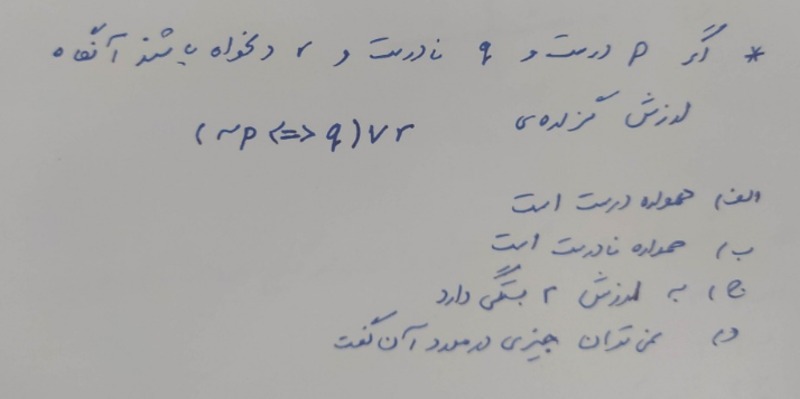 * اگر p درست و q نادرست و r دلخواه باشند آنگاه
ارزش گزاره‌ی (~p <=> q) ∨ r
الف) همواره درست است
ب) همواره نادرست است
ج) به ارزش r بستگی دارد
د) نمی‌توان چیزی در مورد آن گفت